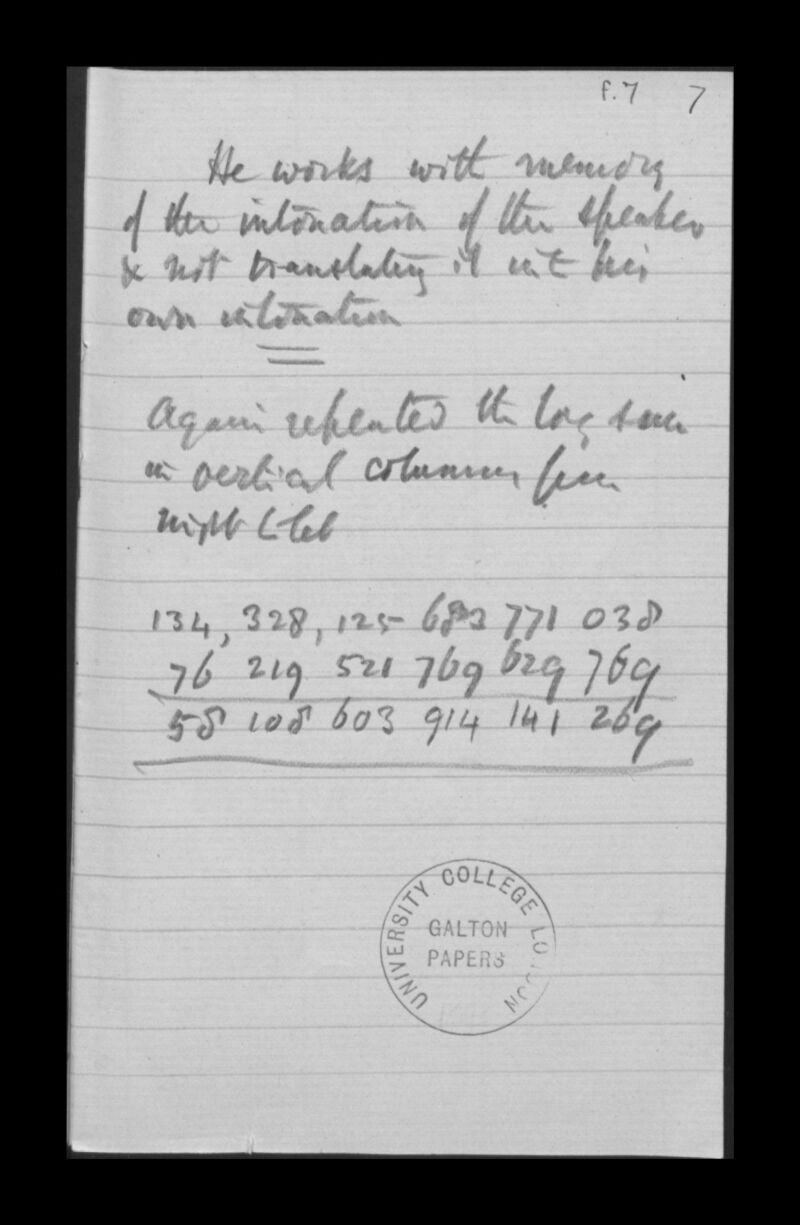 f.7 7
He works with memory
of the intonation of the speaker
& not translating it into his
own intonation
Again repeated the long sum
in vertical columns from
right to left
134, 328, 125 683 771 038
76 219 521 769 629 769
58 108 603 914 141 269
UNIVERSITY COLLEGE LONDON
GALTON
PAPERS